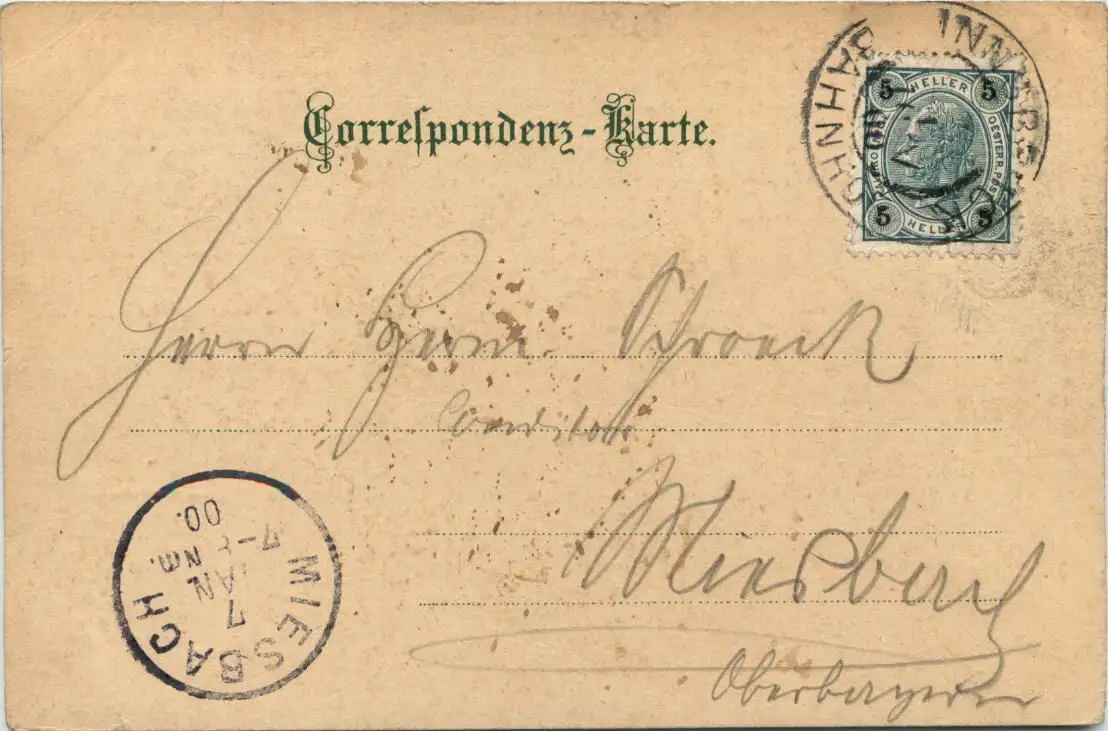 Correspondenz-Karte.
5 HELLER 5
OESTERR. POST
5 HELLER 5
INNSBRUCK
BAHNHOF
Herrn Herm. Schroeck
Conditor
Miesbach
Oberbayern
MIESBACH
7 JAN 00.
7-8 NM.